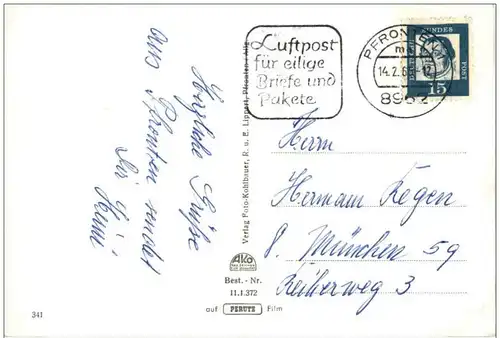 Herzliche Grüße
aus Pfronten sendet
Dir Heini
341
Verlag Foto-Kohlbauer, R. u. E. Lippert, Pfronten / Allg.
Ako
Best.-Nr.
11.1.372
auf PERUTZ Film
Luftpost
für eilige
Briefe und
Pakete
PFRONTEN
14.2.6
8962
BUNDES
POST
15
Herrn
Hermann Regen
8. München 59
Reiherweg 3